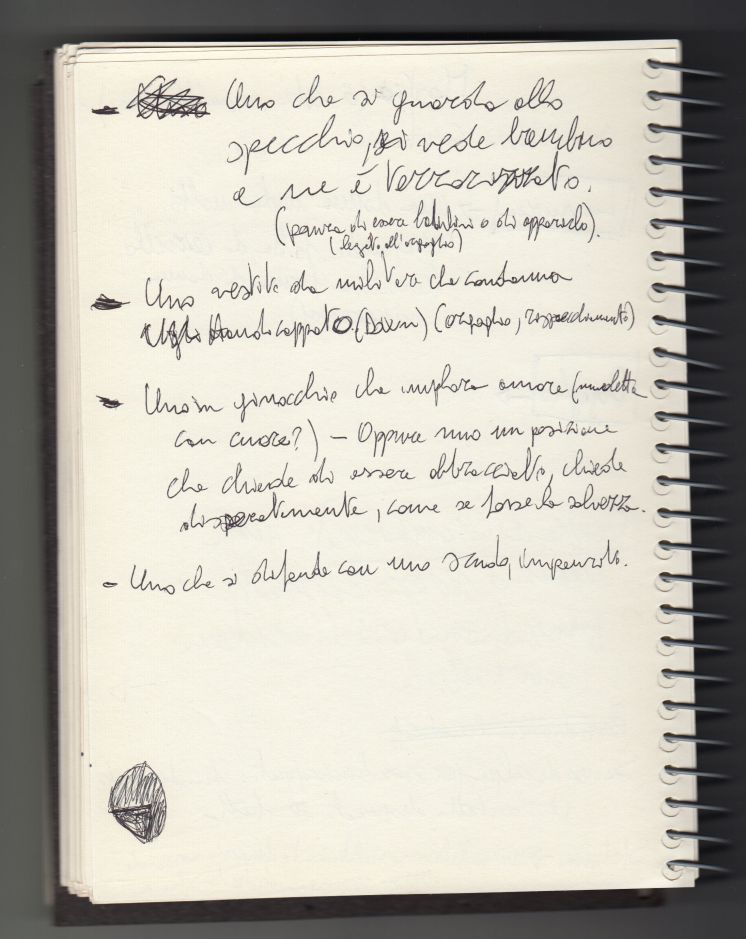 - Uno che si guarda allo
specchio, si vede bambino
e ne è terrorizzato.
(paura di essere bambini o di apparirlo).
(legato all'orgoglio)
- Uno vestito da militare che condanna
Handicappato (Down) (orgoglio, )
- Uno in ginocchio che implora amore (nuvoletta
con cuore?) - Oppure uno in posizione
che chiede di essere abbracciato, chiede
disperatamente, come se fosse la salvezza.
- Uno che si difende con uno scudo, impaurito.